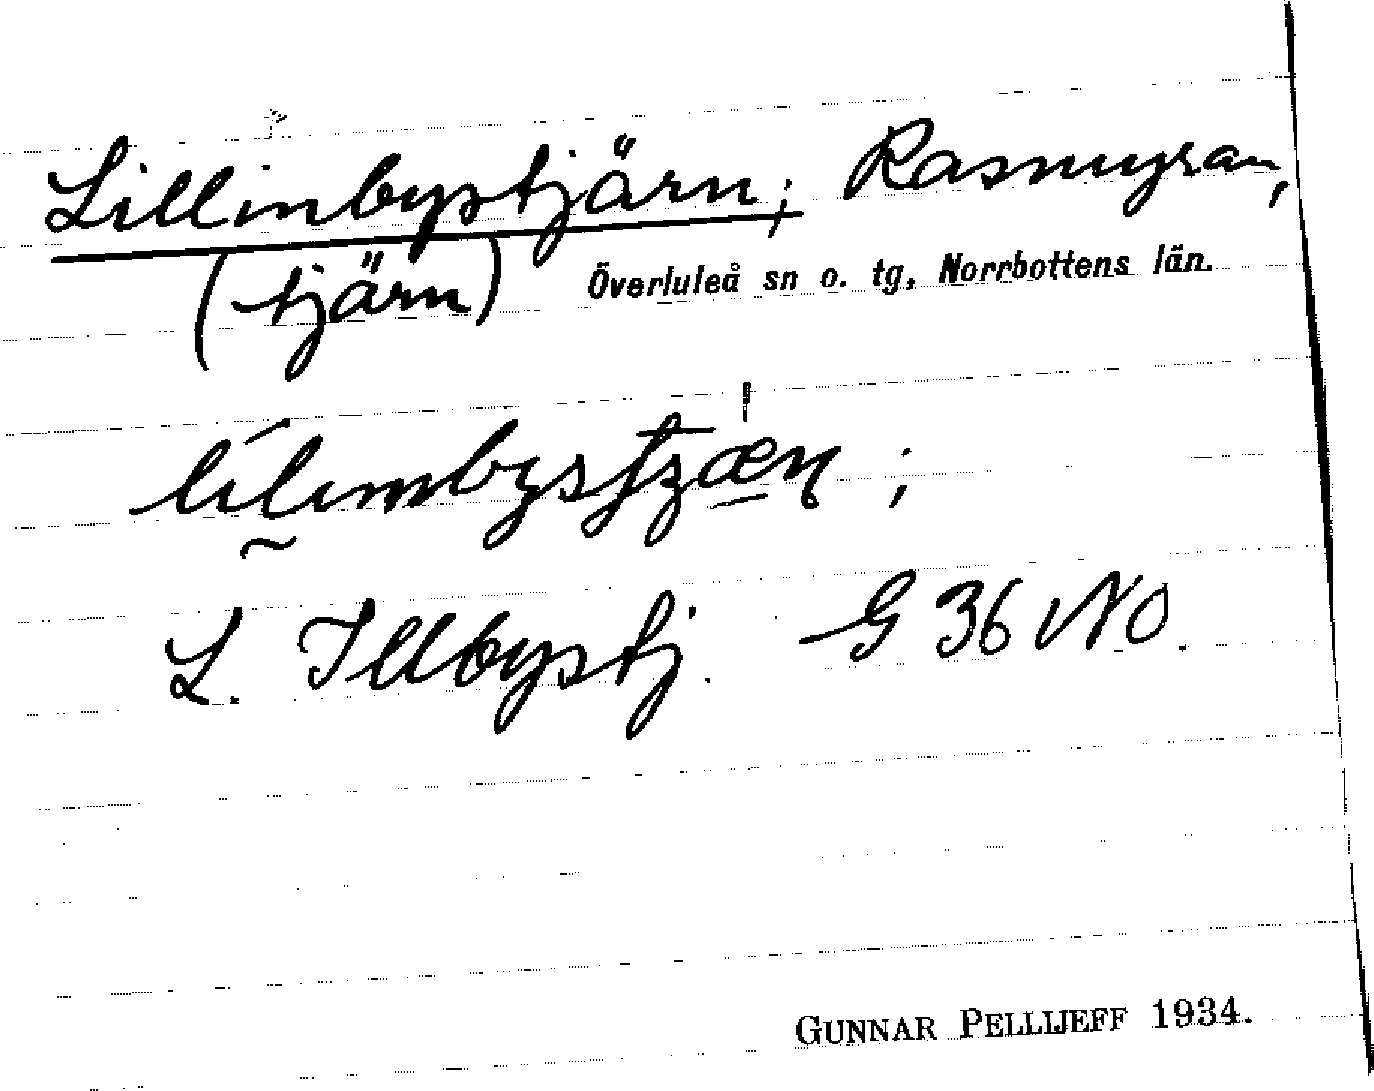 Lillinbystjärn; Rasmyran,
(tjärn) Överluleå sn o. tg, Norrbottens län.
L. Illbystj. G 36 NO.
GUNNAR PELLIJEFF 1934.